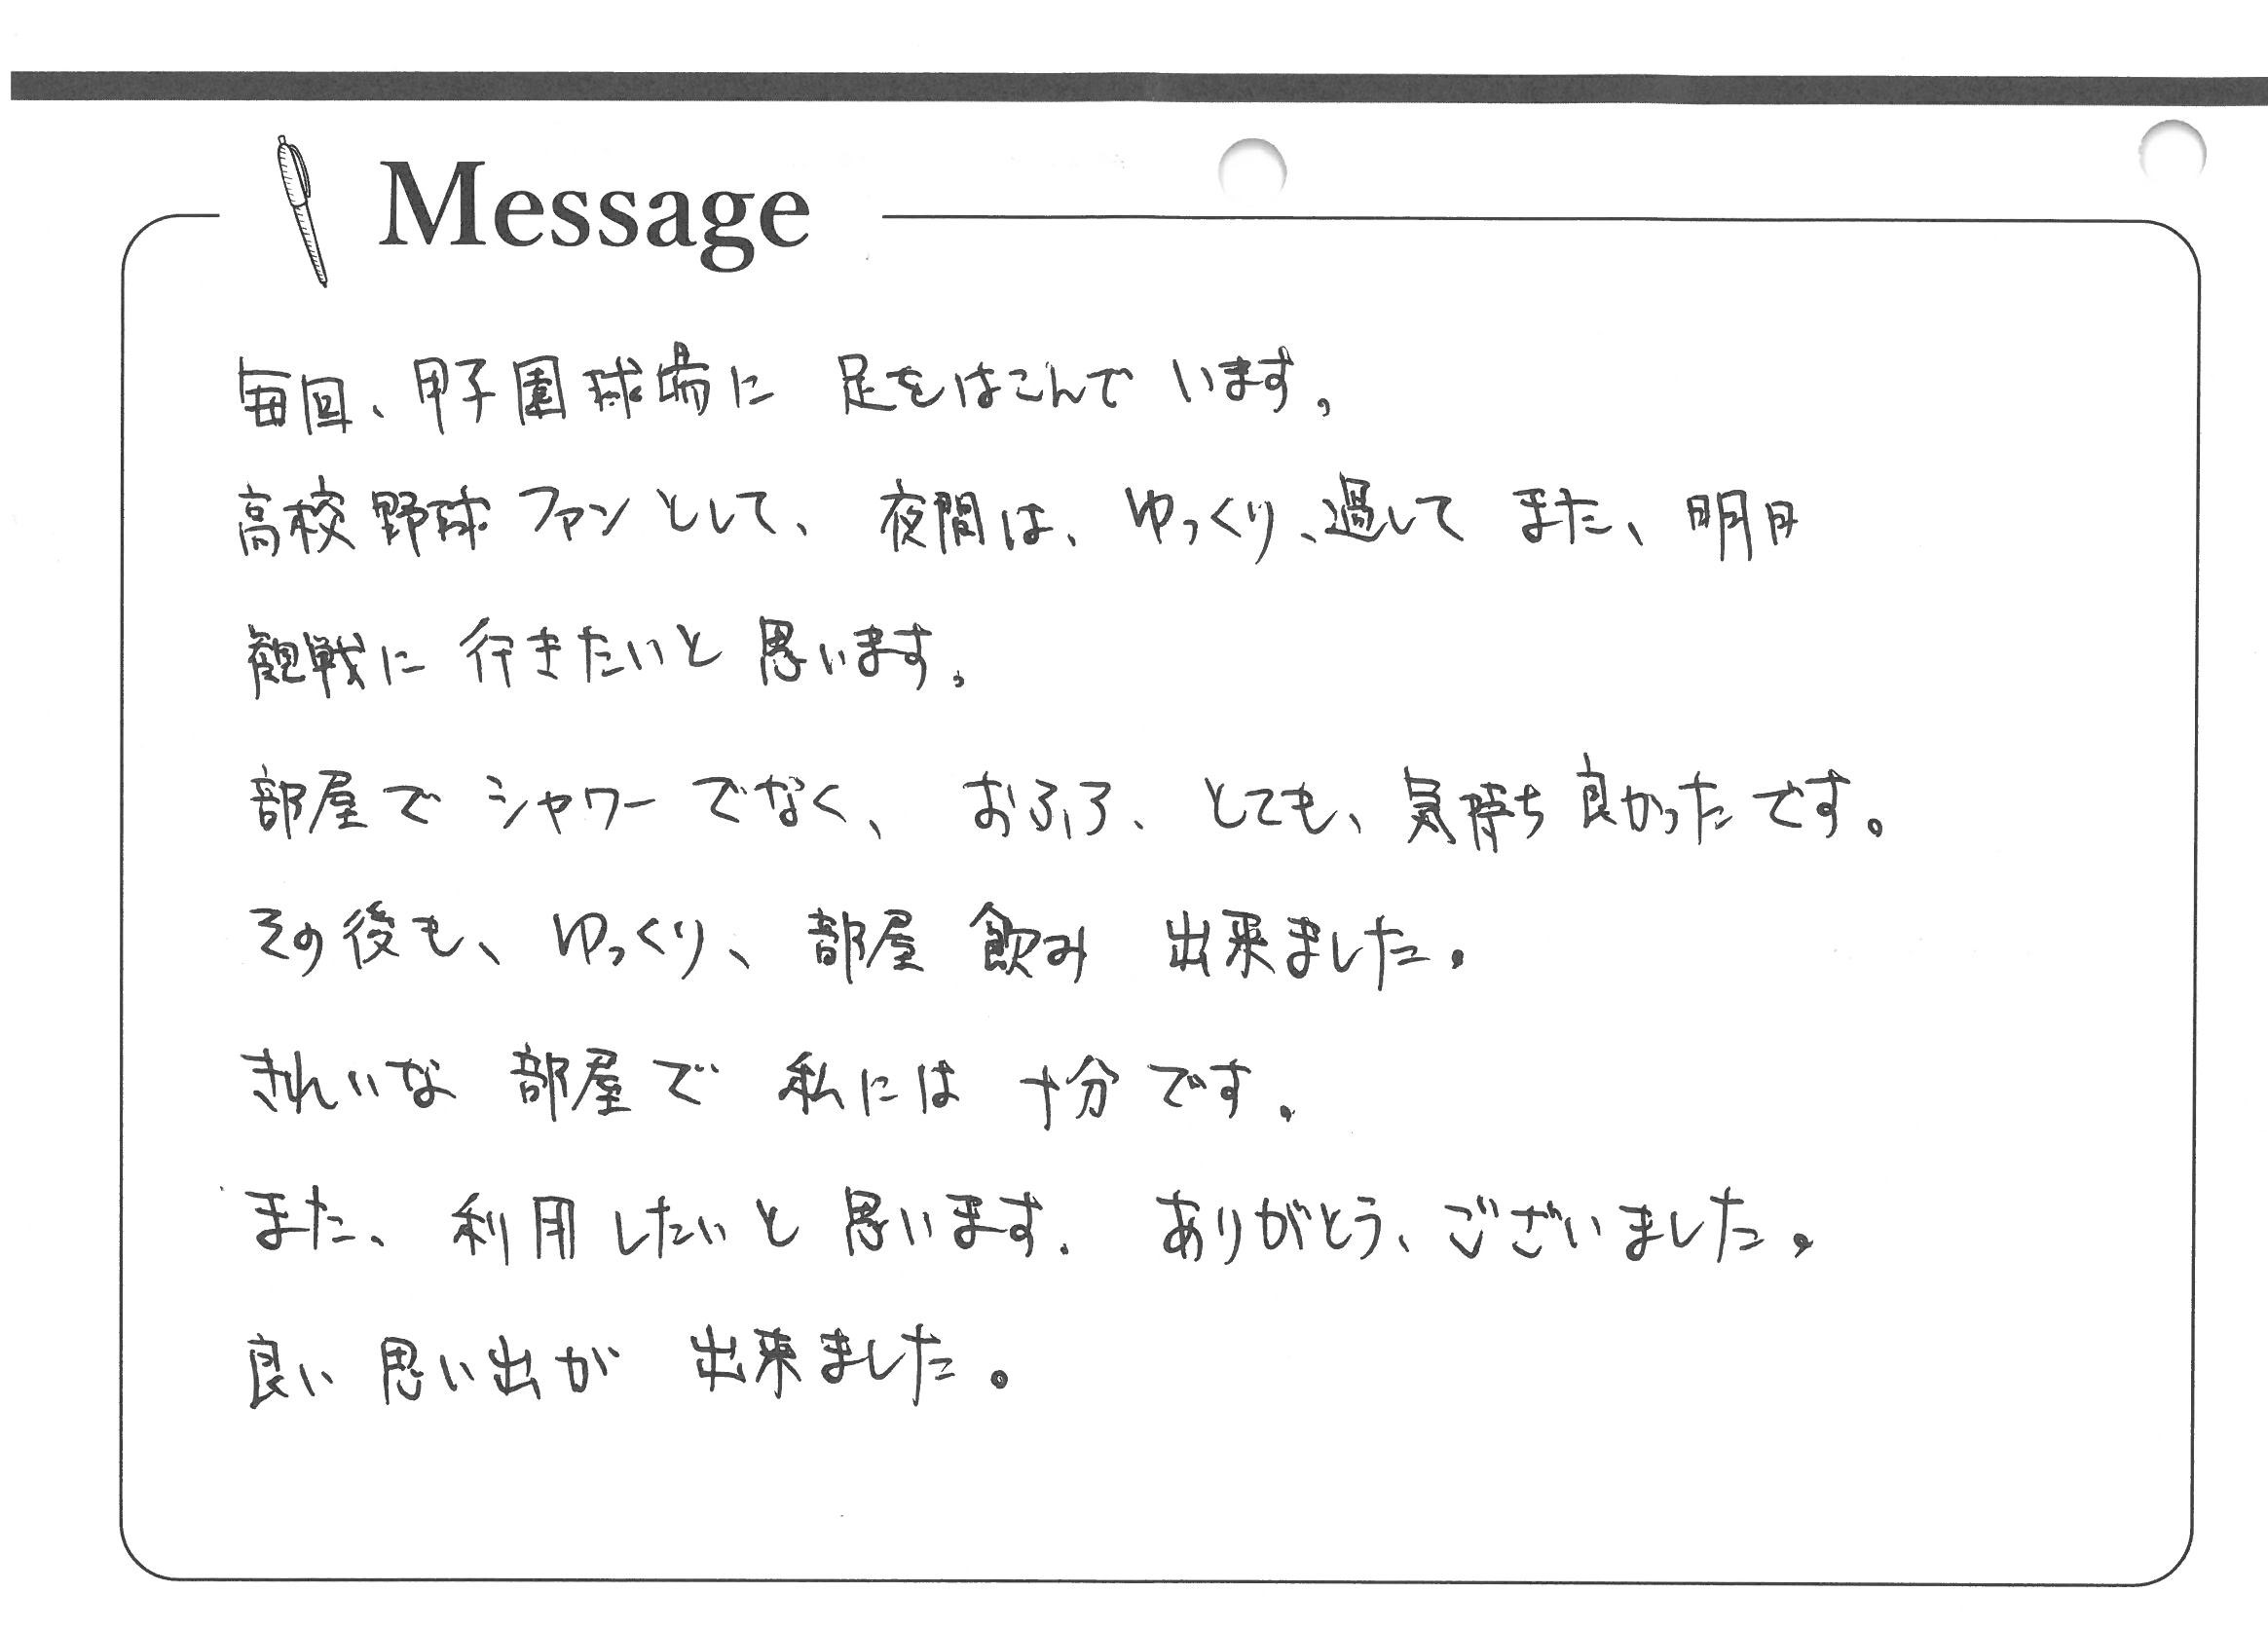 Message
毎回、甲子園球場に 足をはこんで います。
高校野球ファンとして、 夜間は、ゆっくり、過して また、明日
観戦に 行きたいと 思います。
部屋で シャワーでなく、 おふろ、 とても、気持ち良かったです。
その後も、ゆっくり、部屋 飲み 出来ました。
きれいな 部屋で 私には 十分です。
また、利用したいと 思います。 ありがとう、ございました。
良い 思い出が 出来ました。